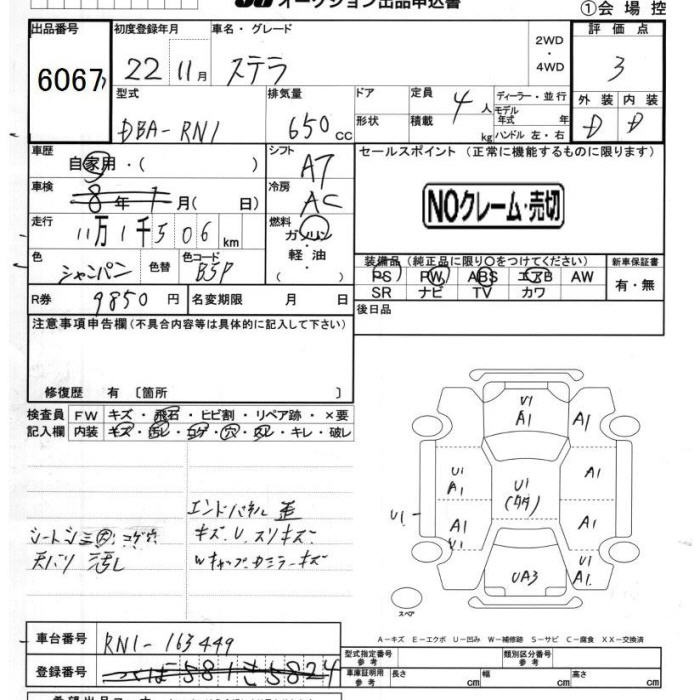 オークション出品申込書
①会場控
出品番号 初度登録年月 車名・グレード 2WD・4WD 評価点
6067 22 11月 ステラ 3
型式 排気量 ドア 定員 4人 ディーラー・並行 外装 内装
DBA-RN1 650cc 形状 積載 kg モデル年式 年 ハンドル 左・右 D D
車歴 自家用・( ) シフト A7 セールスポイント (正常に機能するものに限ります)
車検 8年1月( 日) 冷房 AC
NOクレーム・売切
走行 11万1千506km 燃料 ガソリン・軽油・( )
色 シャンパン 色替 色コード B5P
装備品(純正品に限り○をつけてください) 新車保証書
PS PW ABS エアB AW 有・無
SR ナビ TV カワ
R券 9850円 名変期限 月 日 後日品
注意事項申告欄(不具合内容等は具体的に記入して下さい)
修復歴 有 〔箇所 〕
検査員 FW キズ・飛石・ヒビ割・リペア跡・×要
記入欄 内装 キズ・汚レ・コゲ・穴・スレ・キレ・破レ
エンドパネル 歪
シートシミ 大 コゲ穴 キズ、U、スリキズ
天バリ 汚レ Wキャップ、カミラーキズ
U1
A1
A1
U1
A1
U1
(タタ)
A1
U1
A1
U1
A1
UA3
U1
A1
スペア
A-キズ E-エクボ U-凹み W-補修跡 S-サビ C-腐食 XX-交換済
車台番号 RN1-163449
型式指定番号 参考 類別区分番号 参考
登録番号 つくば581さ5824
車庫証明用 参考 長さ cm 幅 cm 高さ cm